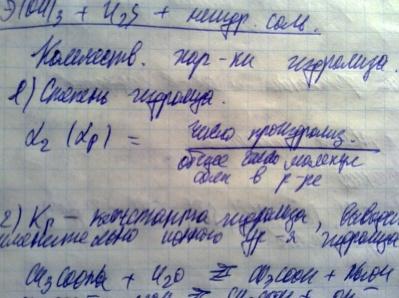 Э(OH)3 + H2S + нейтр. соль.
Количеств. хар-ки гидролиза.
1) Степень гидролиза.
αг (αр) = число прогидролиз.
общее число молекул
соли в р-ре
2) Kр – константа гидролиза,
ионного ур-я гидролиза
CH3COONa + H2O ⇄ CH3COOH + NaOH